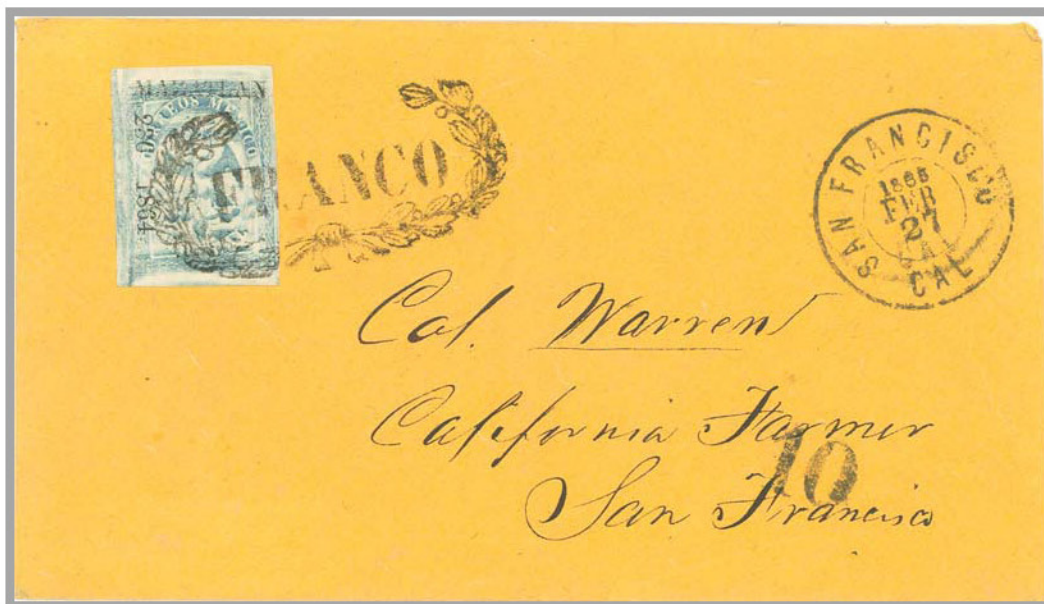 MAZATLAN
CORREOS MEXICO
230 1864
FRANCO
SAN FRANCISCO
1865
FEB
27
CAL
Col. Warren
California Farmer
10
San Francisco